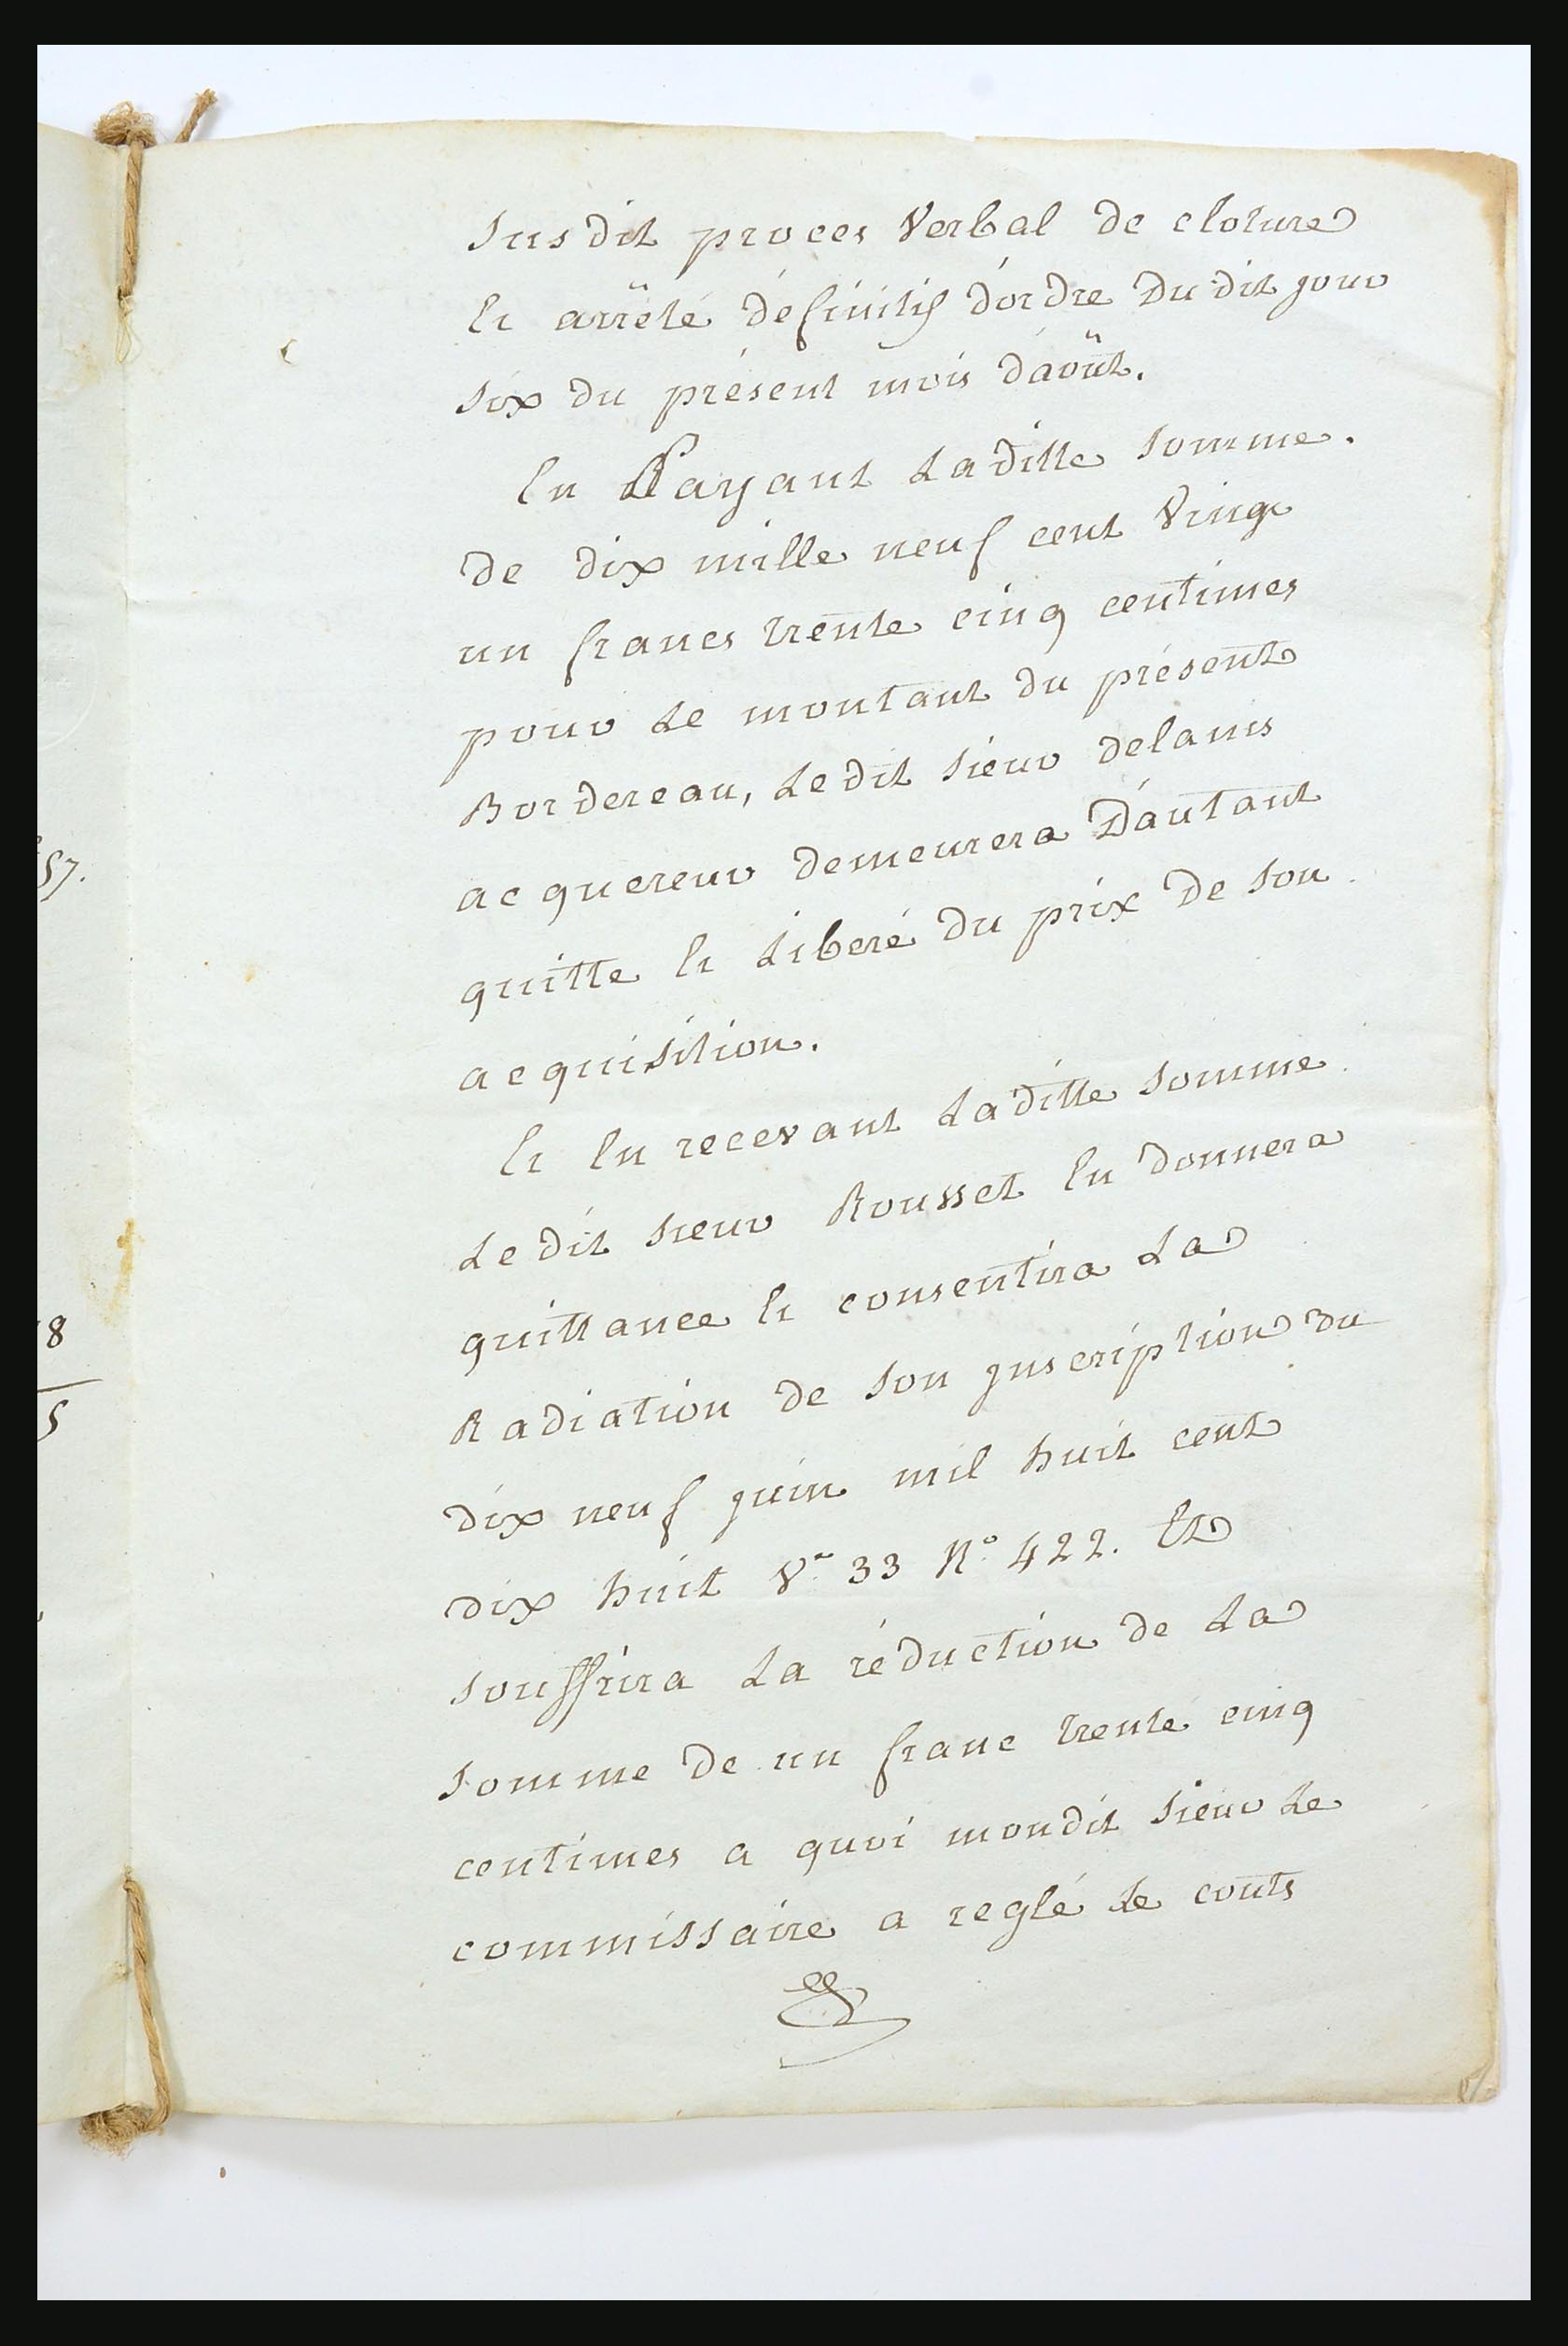 57.
8
5
Susdit proces Verbal de cloture
et arrêté définitif d'ordre Dudit jour
six du présent mois d'août.
En Payant Laditte somme.
de dix mille neuf cent Vingt
un francs trente cinq centimes
pour Le montant du présent
Bordereau, Ledit sieur delanis
acquereur demeurera D'autant
quitte et Liberé du prix De son
acquisition.
Et En recevant Laditte somme
Ledit sieur Rousset En donnera
quittance et consentira La
Radiation de son jnscription du
dix neuf juin mil huit cent
dix huit Vre 33 N° 422. Et
souffrira La réduction de La
somme de un franc trente cinq
centimes a quoi mondit sieur Le
commissaire a reglé Le couts